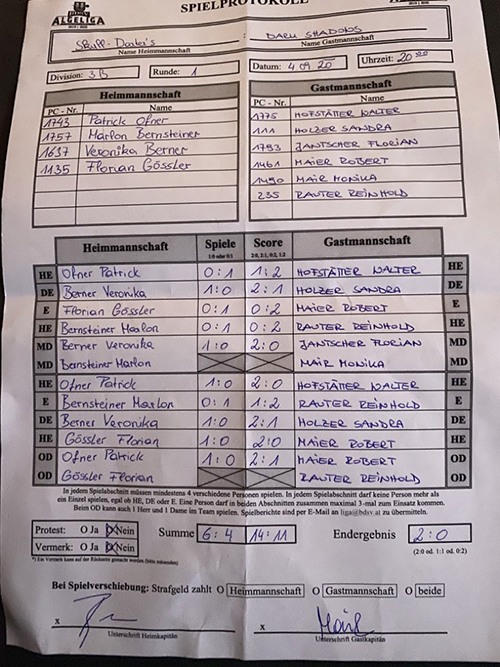 SPIELPROTOKOLL
ALGELIGA
Skull-Darter's
Name Heimmannschaft
DARK SHADOWS
Name Gastmannschaft
Division: 3B
Runde: 1
Datum: 4.09.20
Uhrzeit: 20:00
Heimmannschaft
PC - Nr. Name
1743 Patrick Ofner
1757 Marlon Bernsteiner
1637 Veronika Berner
1135 Florian Gössler
Gastmannschaft
PC - Nr. Name
1775 HOFSTÄTTER WALTER
111 HOLZER SANDRA
1793 JANTSCHER FLORIAN
1461 MAIER ROBERT
1490 MAIR MONIKA
235 RAUTER REINHOLD
Heimmannschaft Spiele Score Gastmannschaft
1:0 oder 0:1 2:0, 2:1, 0:2, 1:2
HE Ofner Patrick 0:1 1:2 HOFSTÄTTER WALTER HE
DE Berner Veronika 1:0 2:1 HOLZER SANDRA DE
E Florian Gössler 0:1 0:2 MAIER ROBERT E
HE Bernsteiner Marlon 0:1 0:2 RAUTER REINHOLD HE
MD Berner Veronika 1:0 2:0 JANTSCHER FLORIAN MD
MD Bernsteiner Marlon MAIR MONIKA MD
HE Ofner Patrick 1:0 2:0 HOFSTÄTTER WALTER HE
E Bernsteiner Marlon 0:1 1:2 RAUTER REINHOLD E
DE Berner Veronika 1:0 2:1 HOLZER SANDRA DE
HE Gössler Florian 1:0 2:0 MAIER ROBERT HE
OD Ofner Patrick 1:0 2:1 MAIER ROBERT OD
OD Gössler Florian RAUTER REINHOLD OD
In jedem Spielabschnitt müssen mindestens 4 verschiedene Personen spielen. In jedem Spielabschnitt darf keine Person mehr als
ein Einzel spielen, egal ob HE, DE oder E. Eine Person darf in beiden Abschnitten zusammen maximal 3-mal zum Einsatz kommen.
Beim OD kann auch 1 Herr und 1 Dame im Team spielen. Spielberichte sind per E-Mail an liga@bdsv.at zu übermitteln.
Protest: O Ja Nein
Vermerk: O Ja Nein
Summe 6:4 14:11
Endergebnis 2:0
(2:0 od. 1:1 od. 0:2)
Bei Spielverschiebung: Strafgeld zahlt O Heimmannschaft O Gastmannschaft O beide
x
Unterschrift Heimkapitän
x Mair
Unterschrift Gastkapitän